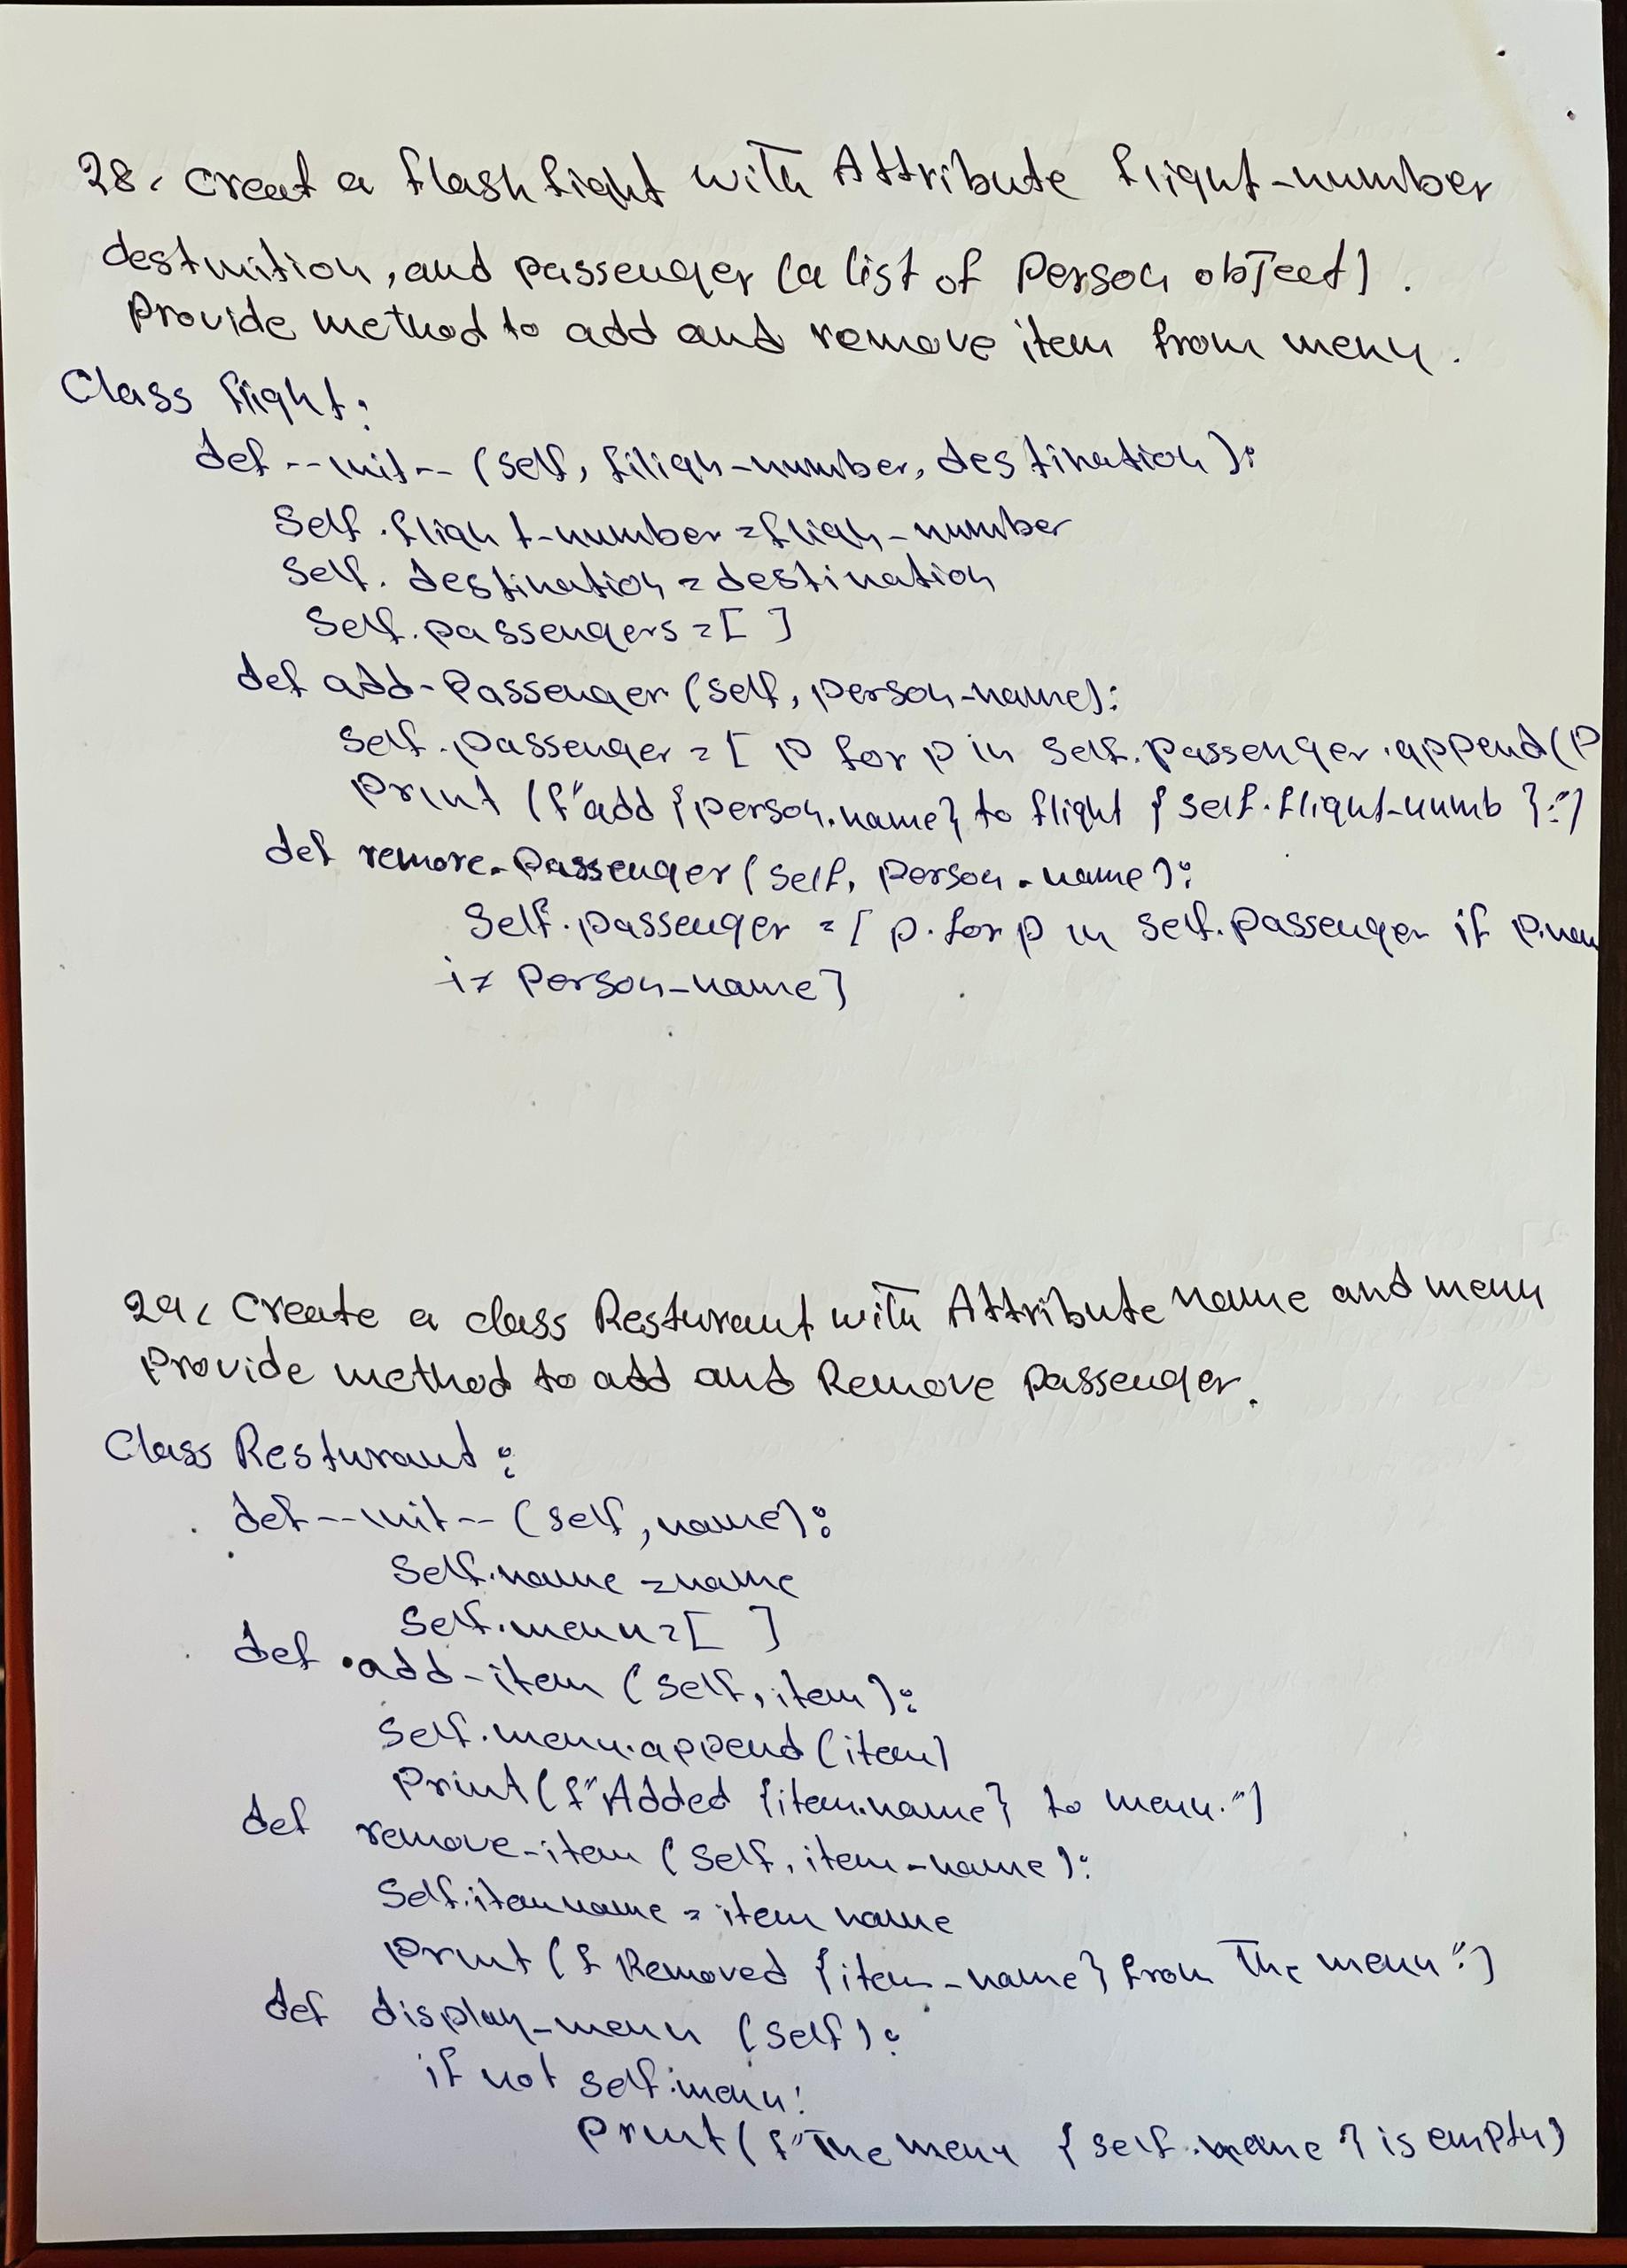 28. Creat a flash fight with Attribute flight-number
destnition, and passenger (a list of Person object).
Provide method to add and remove item from menu.
Class flight:
def --init-- (self, filigh-number, destination):
Self.fligh t-number = fligh-number
Self. destination = destination
Self.passengers = [ ]
def add-Passenger (self, person-name):
Self.passenger = [ p for p in self.passenger.append(P
Print (f"add {person.name} to flight {self.flight-numb }.")
def remove-Passenger (self, Person-name):
Self.passenger = [ p. for p in self.passenger if p.nam
i= Person-name]
29. Create a class Resturant with Attribute name and menu
Provide method to add and Remove passenger.
Class Resturant:
def --init-- (self, name):
Self.name = name
Self.menu = [ ]
def add-item (self, item):
Self.menu.append (item)
Print (f"Added {item.name} to menu.")
def remove-item (self, item-name):
Self.item name = item name
Print (f Removed {item-name} from The menu".)
def display-menu (self):
if not self.menu:
Print (f"The menu {self.name} is empty)